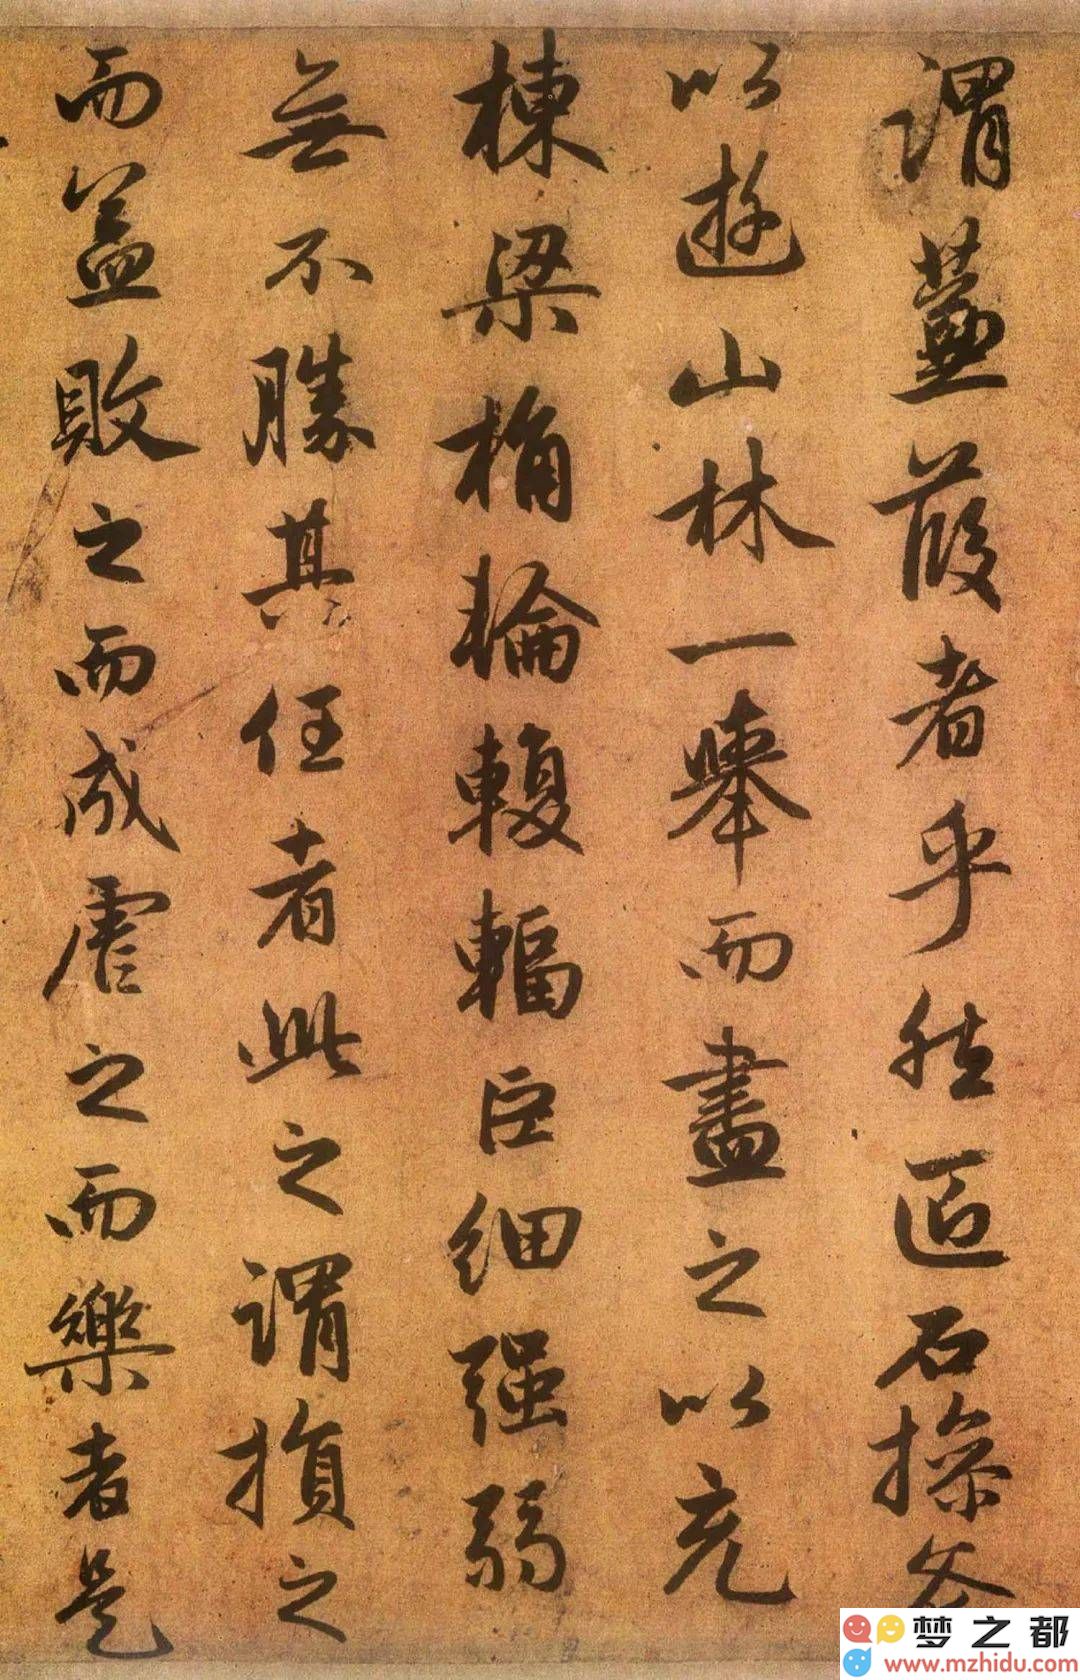 謂蒹葭者乎然匠石操斧
以遊山林一舉而盡之以充
棟梁桷輪輹輻巨細强弱
無不勝其任者此之謂損之
而益敗之而成虐之而樂者是
梦之都
www.mzhidu.com